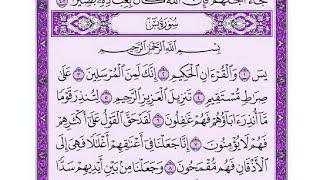 جَاءَ أَجَلُهُمْ فَإِنَّ اللَّهَ كَانَ بِعِبَادِهِ بَصِيرًا ٤٥
سُورَةُ يسٓ
بِسْمِ اللَّهِ الرَّحْمَٰنِ الرَّحِيمِ
يسٓ ١ وَالْقُرْءَانِ الْحَكِيمِ ٢ إِنَّكَ لَمِنَ الْمُرْسَلِينَ ٣ عَلَىٰ
صِرَاطٍ مُّسْتَقِيمٍ ٤ تَنزِيلَ الْعَزِيزِ الرَّحِيمِ ٥ لِتُنذِرَ قَوْمًا
مَّا أُنذِرَ ءَابَاؤُهُمْ فَهُمْ غَافِلُونَ ٦ لَقَدْ حَقَّ الْقَوْلُ عَلَىٰ أَكْثَرِهِمْ
فَهُمْ لَا يُؤْمِنُونَ ٧ إِنَّا جَعَلْنَا فِي أَعْنَاقِهِمْ أَغْلَالًا فَهِيَ إِلَى
الْأَذْقَانِ فَهُم مُّقْمَحُونَ ٨ وَجَعَلْنَا مِن بَيْنِ أَيْدِيهِمْ سَدًّا